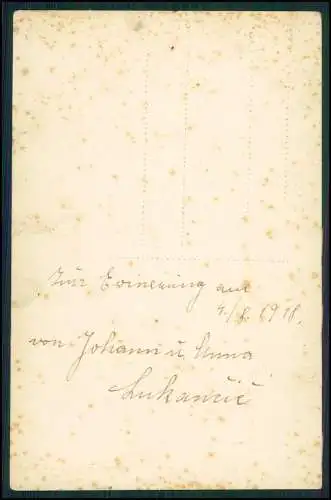 Zur Erinerung am
4./8. 1918.
von Johann u. Anna
Lukančić